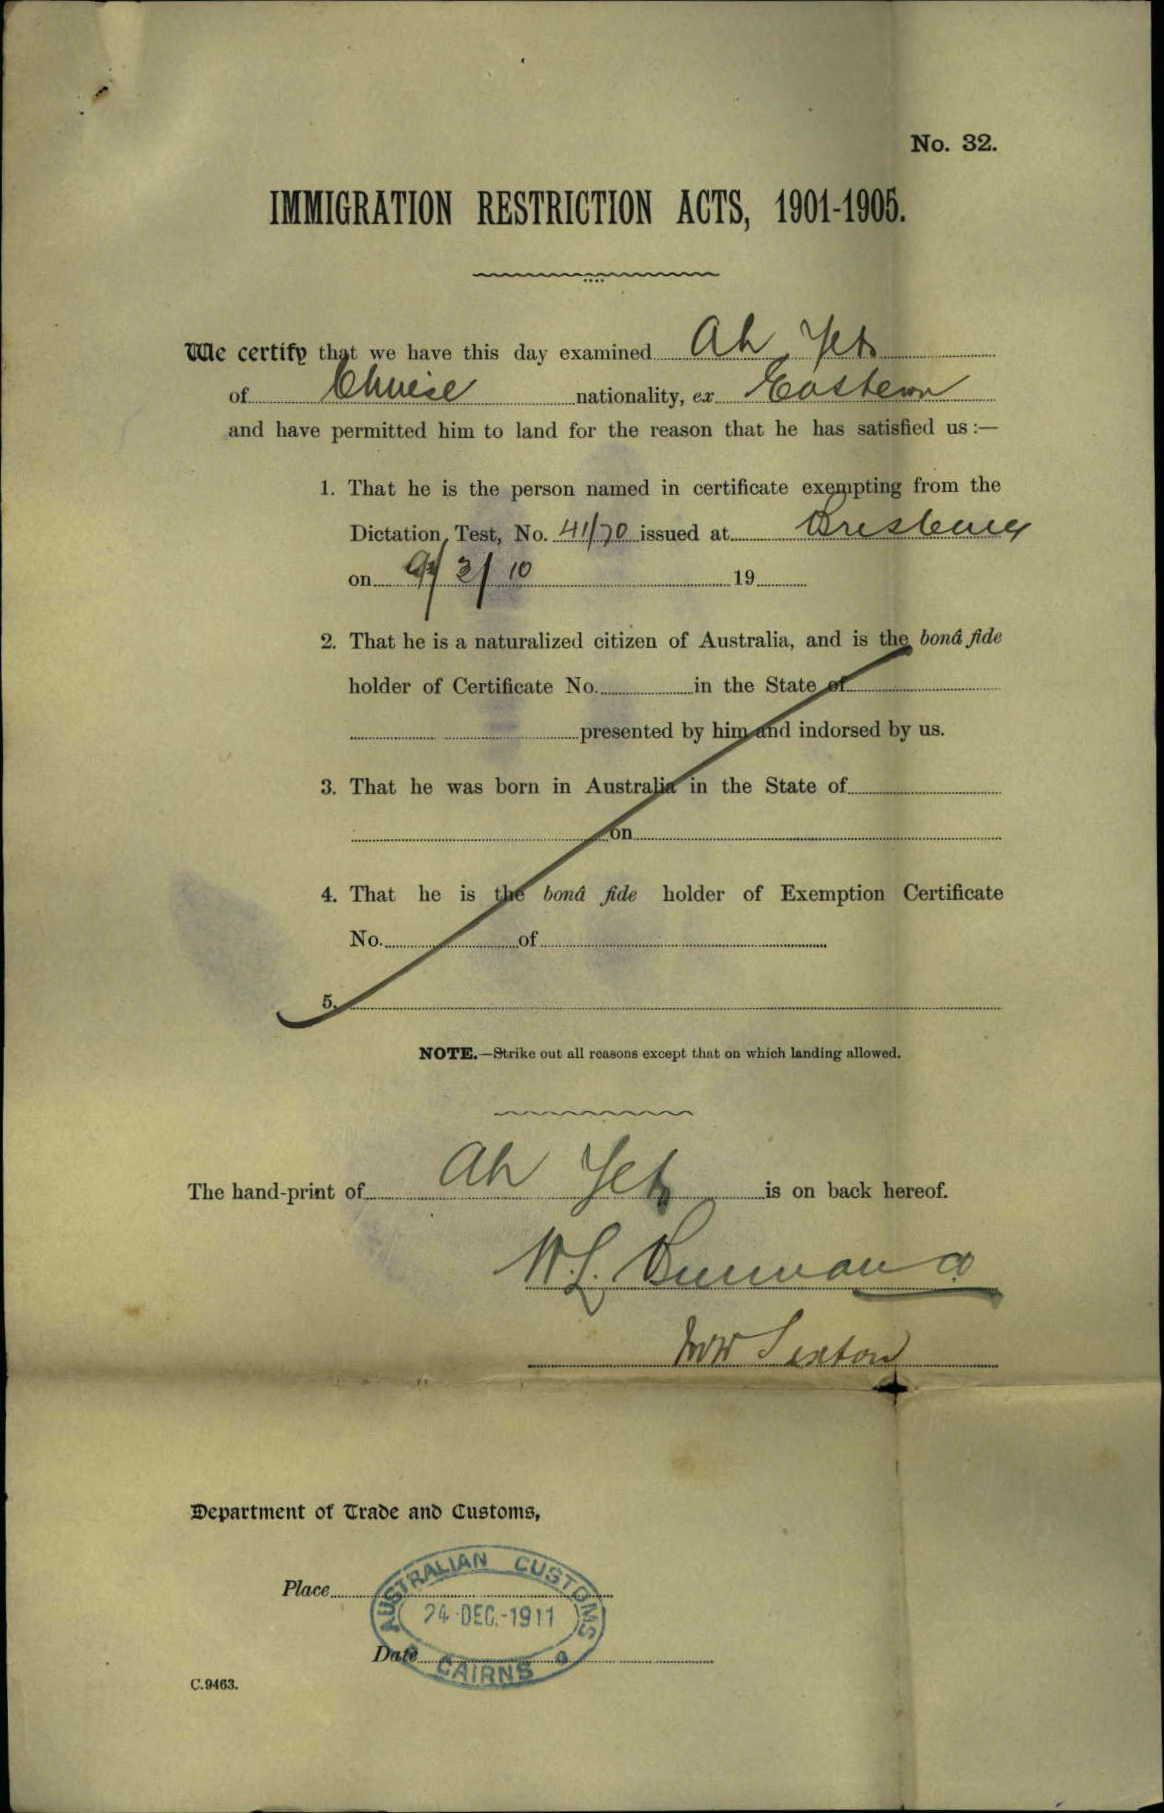 No. 32.
IMMIGRATION RESTRICTION ACTS, 1901-1905.
We certify that we have this day examined Ah Yet
of Chinese nationality, ex Eastern
and have permitted him to land for the reason that he has satisfied us:—
1. That he is the person named in certificate exempting from the
Dictation Test, No. 41/70 issued at Brisbane
on 3/10 19
2. That he is a naturalized citizen of Australia, and is the bonâ fide
holder of Certificate No. in the State of
presented by him and indorsed by us.
3. That he was born in Australia in the State of
on
4. That he is the bonâ fide holder of Exemption Certificate
No. of
5.
NOTE.—Strike out all reasons except that on which landing allowed.
The hand-print of Ah Yet is on back hereof.
W. L.
Sexton
Department of Trade and Customs,
Place
AUSTRALIAN CUSTOMS
24 DEC.-1911
Date
CAIRNS
C.9463.